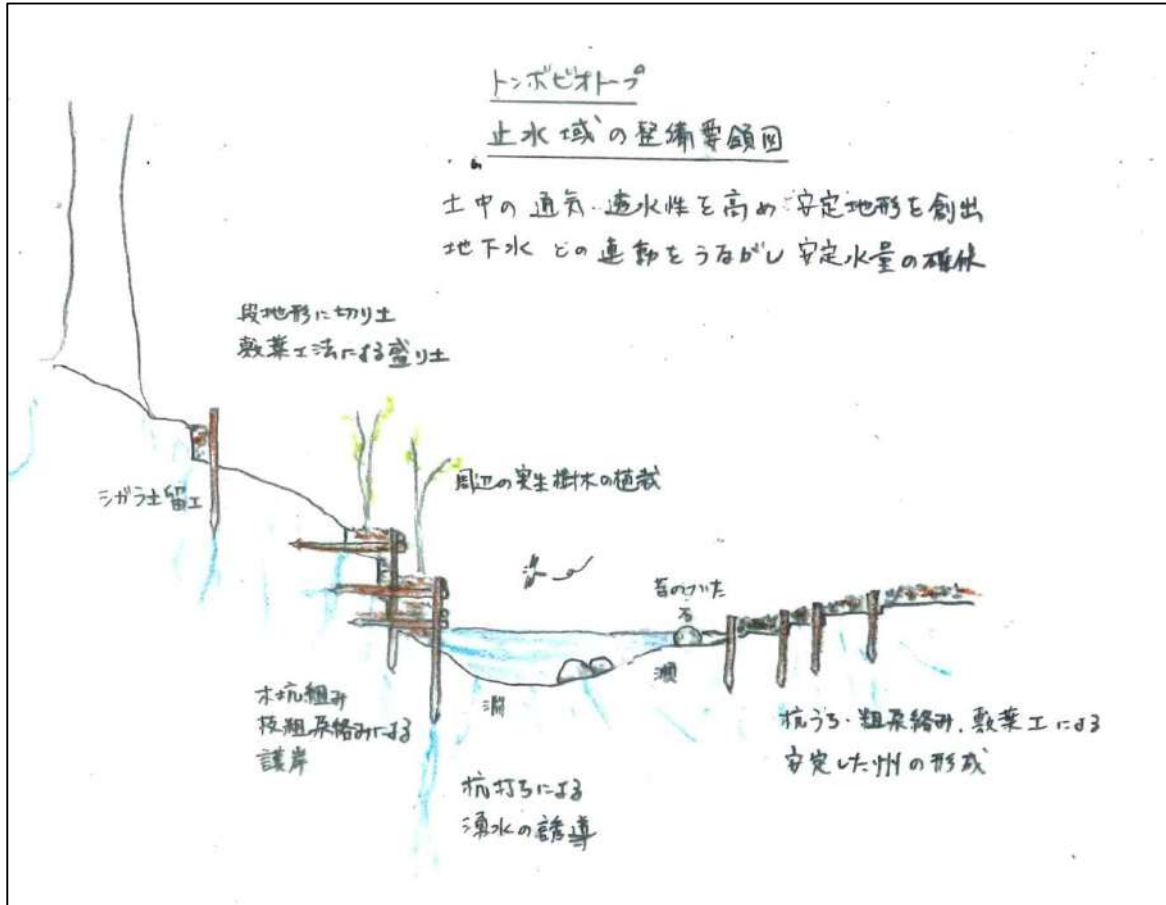 トンボビオトープ
止水域の整備要領図
土中の通気・透水性を高め 安定地形を創出
地下水との連動をうながし 安定水量の確保
段地形に切り土
敷葉工法による盛り土
シガラ土留工
周辺の実生樹木の植栽
苔のついた
石
瀬
淵
木杭組み
枝粗朶絡みによる
護岸
杭打ちによる
湧水の誘導
杭うち・粗朶絡み、敷葉工による
安定した州の形成